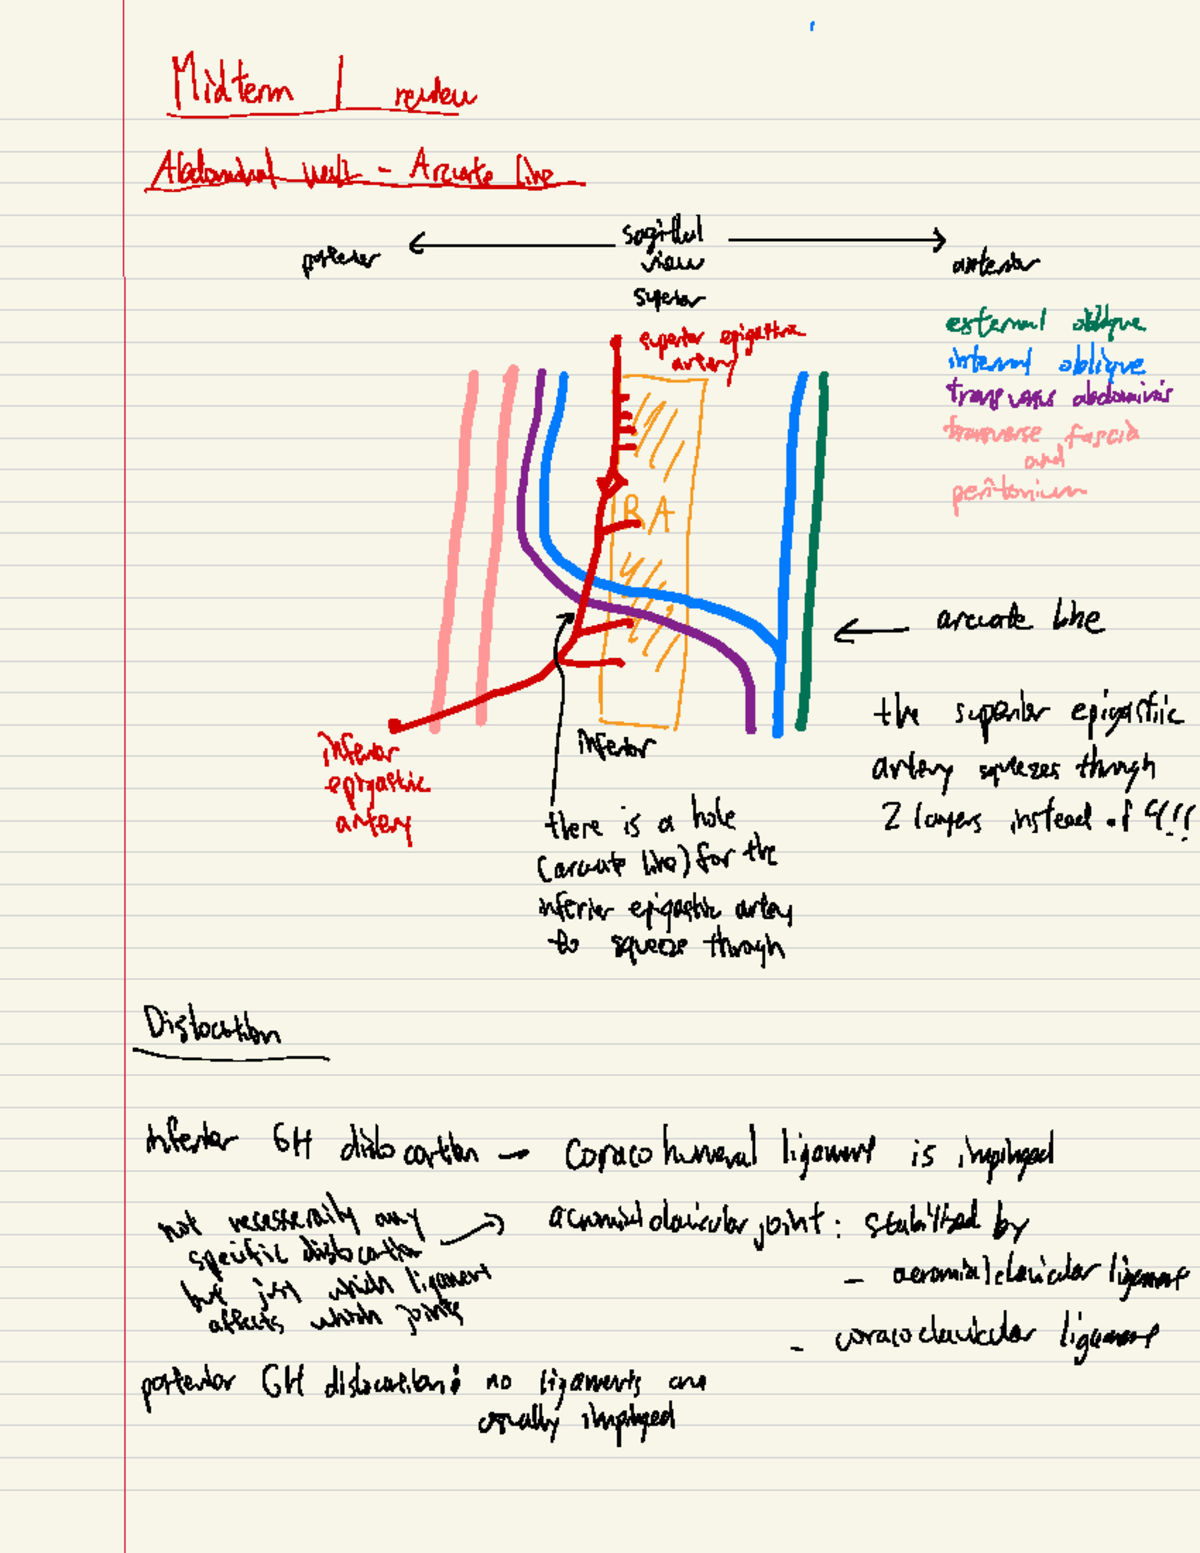 Midterm 1 review
Abdominal wall - Arcuate line
posterior
sagittal
view
anterior
superior
superior epigastric
artery
external oblique
internal oblique
transversus abdominis
transverse fascia
and
peritonium
RA
arcuate line
the superior epigastric
artery squeezes through
2 layers instead of 4!!!
inferior
inferior
epigastic
artery
there is a hole
(arcuate line) for the
inferior epigastic artery
to squeeze through
Dislocation
inferior GH dislocation - Coracohumeral ligament is
not necessarily any
specific dislocation
but just which ligament
affects which joints
acromioclavicular joint: stabilized by
- acromioclavicular ligament
- coracoclavicular ligament
posterior GH dislocation: no ligaments are
usually